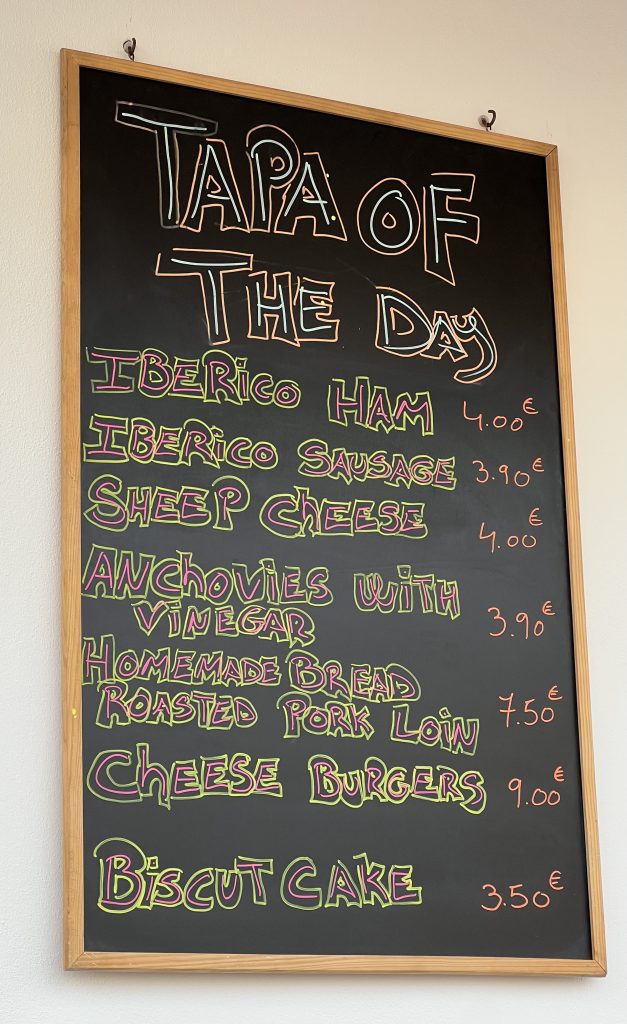 TAPA OF
THE DAY
IBERICO HAM 4.00€
IBERICO SAUSAGE 3.90€
SHEEP CHEESE 4.00€
ANCHOVIES WITH
VINEGAR 3.90€
HOMEMADE BREAD
ROASTED PORK LOIN 7.50€
CHEESE BURGERS 9.00€
BISCUT CAKE 3.50€